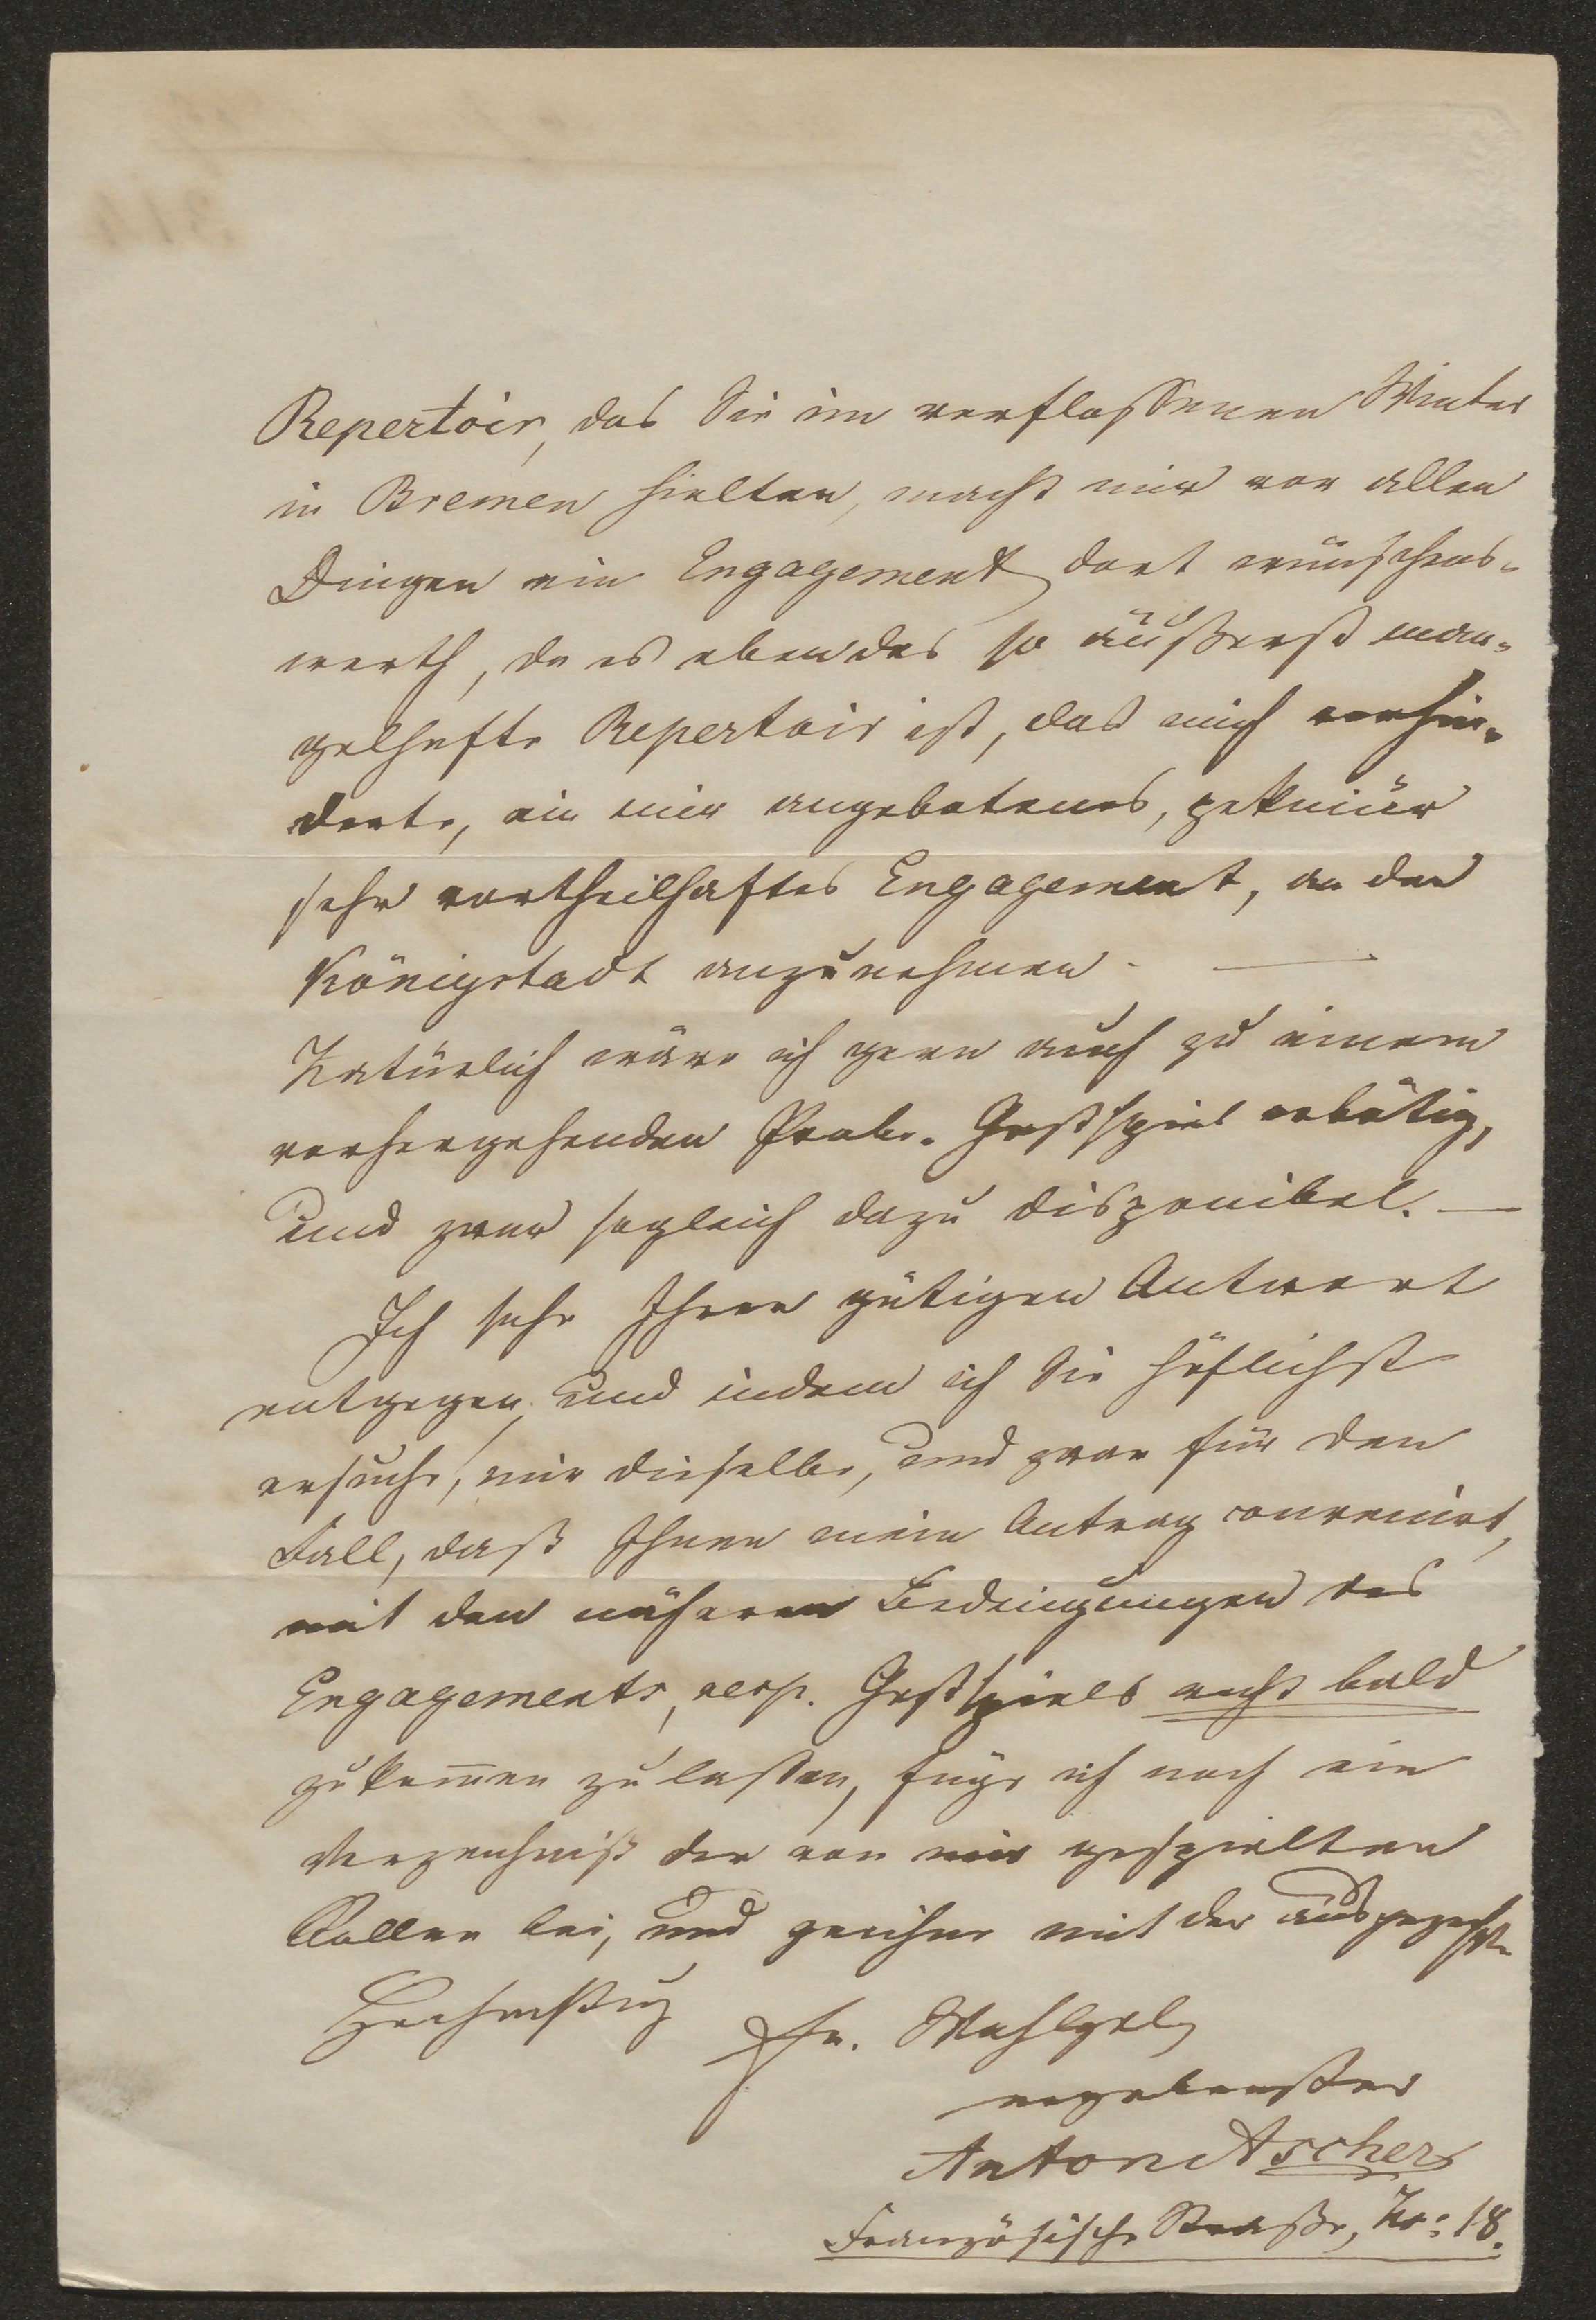 Repertoir, das Sie im verflossenen Winter
in Bremen hielten, macht mir vor allen
Dingen ein Engagement dort wünschens-
werth, da es eben das so äußerst man-
gelhafte Repertoir ist, das mich verhin-
derte, ein mir angebotenes, pekuniär
sehr vortheilhaftes Engagement, an der
Königstadt anzunehmen. —
Natürlich wäre ich gern auch zu einem
vorhergehenden Probe-Gastspiel erbötig,
und zwar sogleich dazu disponibel. —
Ich sehe Ihrer gütigen Antwort
entgegen, und indem ich Sie höflichst
ersuche, mir dieselbe, und zwar für den
Fall, daß Ihnen mein Antrag convenirt,
mit den näheren Bedingungen des
Engagements, resp. Gastspiels recht bald
zukom̄en zu lassen, füge ich noch ein
Verzeichniß der von mir gespielten
Rollen bei, und zeichne mit der
Hochachtung Ew. Wohlgeb
ergebenster
Anton Ascher
Französische Straße, No: 18.